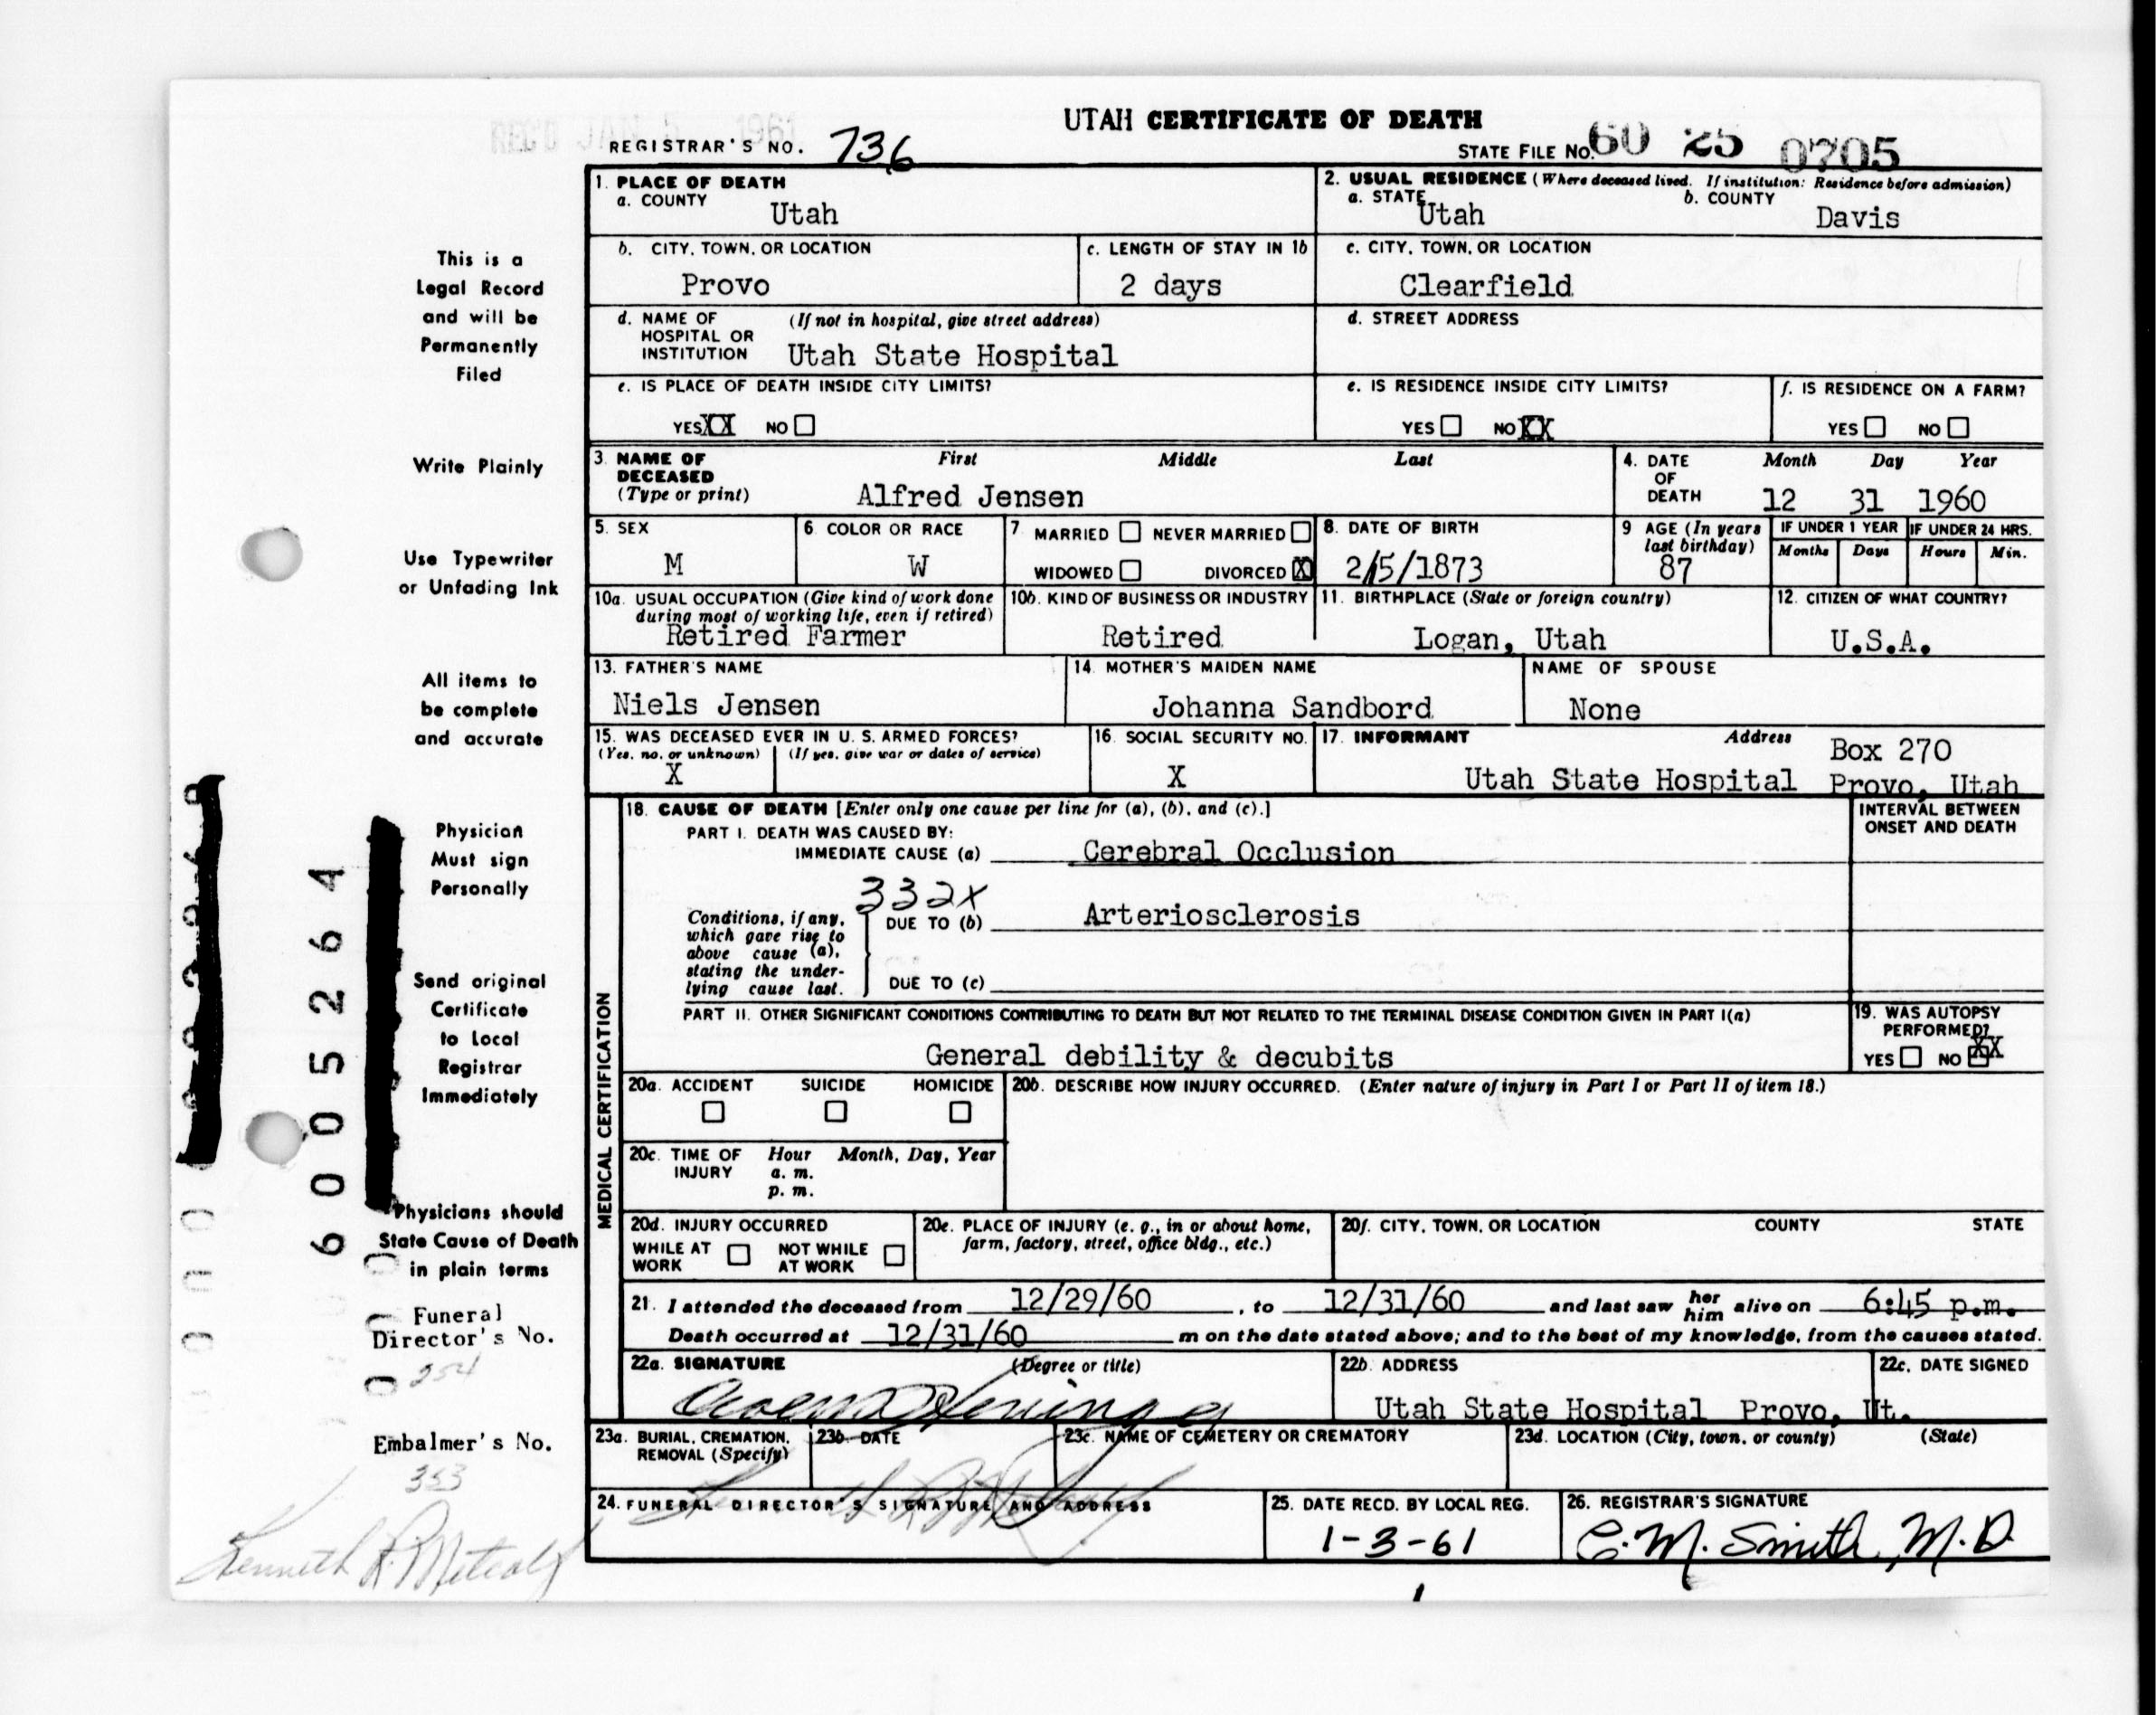 REC'D JAN 1961
UTAH CERTIFICATE OF DEATH
REGISTRAR'S NO. 736
STATE FILE NO. 60 25 0705
1. PLACE OF DEATH
a. COUNTY
Utah
2. USUAL RESIDENCE (Where deceased lived. If institution: Residence before admission)
a. STATE b. COUNTY
Utah Davis
b. CITY, TOWN, OR LOCATION
Provo
c. LENGTH OF STAY IN 1b
2 days
c. CITY, TOWN, OR LOCATION
Clearfield
d. NAME OF (If not in hospital, give street address)
HOSPITAL OR
INSTITUTION Utah State Hospital
d. STREET ADDRESS
e. IS PLACE OF DEATH INSIDE CITY LIMITS?
YES XX NO
e. IS RESIDENCE INSIDE CITY LIMITS?
YES NO XX
f. IS RESIDENCE ON A FARM?
YES NO
3. NAME OF First Middle Last
DECEASED
(Type or print) Alfred Jensen
4. DATE Month Day Year
OF
DEATH 12 31 1960
5. SEX
M
6. COLOR OR RACE
W
7. MARRIED NEVER MARRIED
WIDOWED DIVORCED X
8. DATE OF BIRTH
2/5/1873
9 AGE (In years
last birthday)
87
IF UNDER 1 YEAR IF UNDER 24 HRS.
Months Days Hours Min.
10a. USUAL OCCUPATION (Give kind of work done
during most of working life, even if retired)
Retired Farmer
10b. KIND OF BUSINESS OR INDUSTRY
Retired
11. BIRTHPLACE (State or foreign country)
Logan, Utah
12. CITIZEN OF WHAT COUNTRY?
U.S.A.
13. FATHER'S NAME
Niels Jensen
14. MOTHER'S MAIDEN NAME
Johanna Sandbord
NAME OF SPOUSE
None
15. WAS DECEASED EVER IN U. S. ARMED FORCES?
(Yes, no, or unknown) (If yes, give war or dates of service)
X
16. SOCIAL SECURITY NO.
X
17. INFORMANT Address
Box 270
Utah State Hospital Provo, Utah
MEDICAL CERTIFICATION
18. CAUSE OF DEATH [Enter only one cause per line for (a), (b), and (c).]
INTERVAL BETWEEN
ONSET AND DEATH
PART I. DEATH WAS CAUSED BY:
IMMEDIATE CAUSE (a) Cerebral Occlusion
332X
Conditions, if any,
which gave rise to
above cause (a),
stating the under-
lying cause last.
DUE TO (b) Arteriosclerosis
DUE TO (c)
PART II. OTHER SIGNIFICANT CONDITIONS CONTRIBUTING TO DEATH BUT NOT RELATED TO THE TERMINAL DISEASE CONDITION GIVEN IN PART I(a)
General debility & decubits
19. WAS AUTOPSY
PERFORMED?
YES NO XX
20a. ACCIDENT SUICIDE HOMICIDE
20b. DESCRIBE HOW INJURY OCCURRED. (Enter nature of injury in Part I or Part II of item 18.)
20c. TIME OF Hour Month, Day, Year
INJURY a. m.
p. m.
20d. INJURY OCCURRED
WHILE AT NOT WHILE
WORK AT WORK
20e. PLACE OF INJURY (e. g., in or about home,
farm, factory, street, office bldg., etc.)
20f. CITY, TOWN, OR LOCATION COUNTY STATE
21. I attended the deceased from 12/29/60, to 12/31/60 and last saw her him alive on 6:45 p.m.
Death occurred at 12/31/60 m on the date stated above; and to the best of my knowledge, from the causes stated.
22a. SIGNATURE (Degree or title)
22b. ADDRESS
Utah State Hospital Provo, Ut.
22c. DATE SIGNED
23a. BURIAL, CREMATION,
REMOVAL (Specify)
23b. DATE
23c. NAME OF CEMETERY OR CREMATORY
23d. LOCATION (City, town, or county) (State)
24. FUNERAL DIRECTOR'S SIGNATURE AND ADDRESS
Kenneth R. Metcalf
25. DATE RECD. BY LOCAL REG.
1-3-61
26. REGISTRAR'S SIGNATURE
C. M. Smith, M.D
This is a
Legal Record
and will be
Permanently
Filed
Write Plainly
Use Typewriter
or Unfading Ink
All items to
be complete
and accurate
Physician
Must sign
Personally
Send original
Certificate
to Local
Registrar
Immediately
Physicians should
State Cause of Death
in plain terms
Funeral
Director's No.
254
Embalmer's No.
353
Kenneth R. Metcalf
6005264